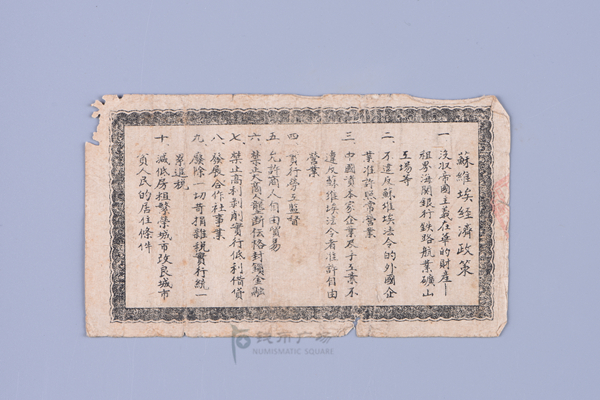 蘇維埃經濟政策
一 沒收帝國主義在華的財產—
租界海関銀行鉄路航業礦山
工場等
二、不違反蘇維埃法令的外國企
業准許照常營業
三、中國資本家企業及手工業不
違反蘇維埃法令者准許自由
營業
四 實行勞工監督
五 允許商人自由貿易
六、禁止大商壟断傢伙封鎖金融
七、禁止高利剝削實行低利借貸
八、發展合作社事業
九、廢除一切苛捐雜稅實行統一
累進稅
十 減低房租整築城市改良城市
貧人民的居住條件
錢币广场
NUMISMATIC SQUARE